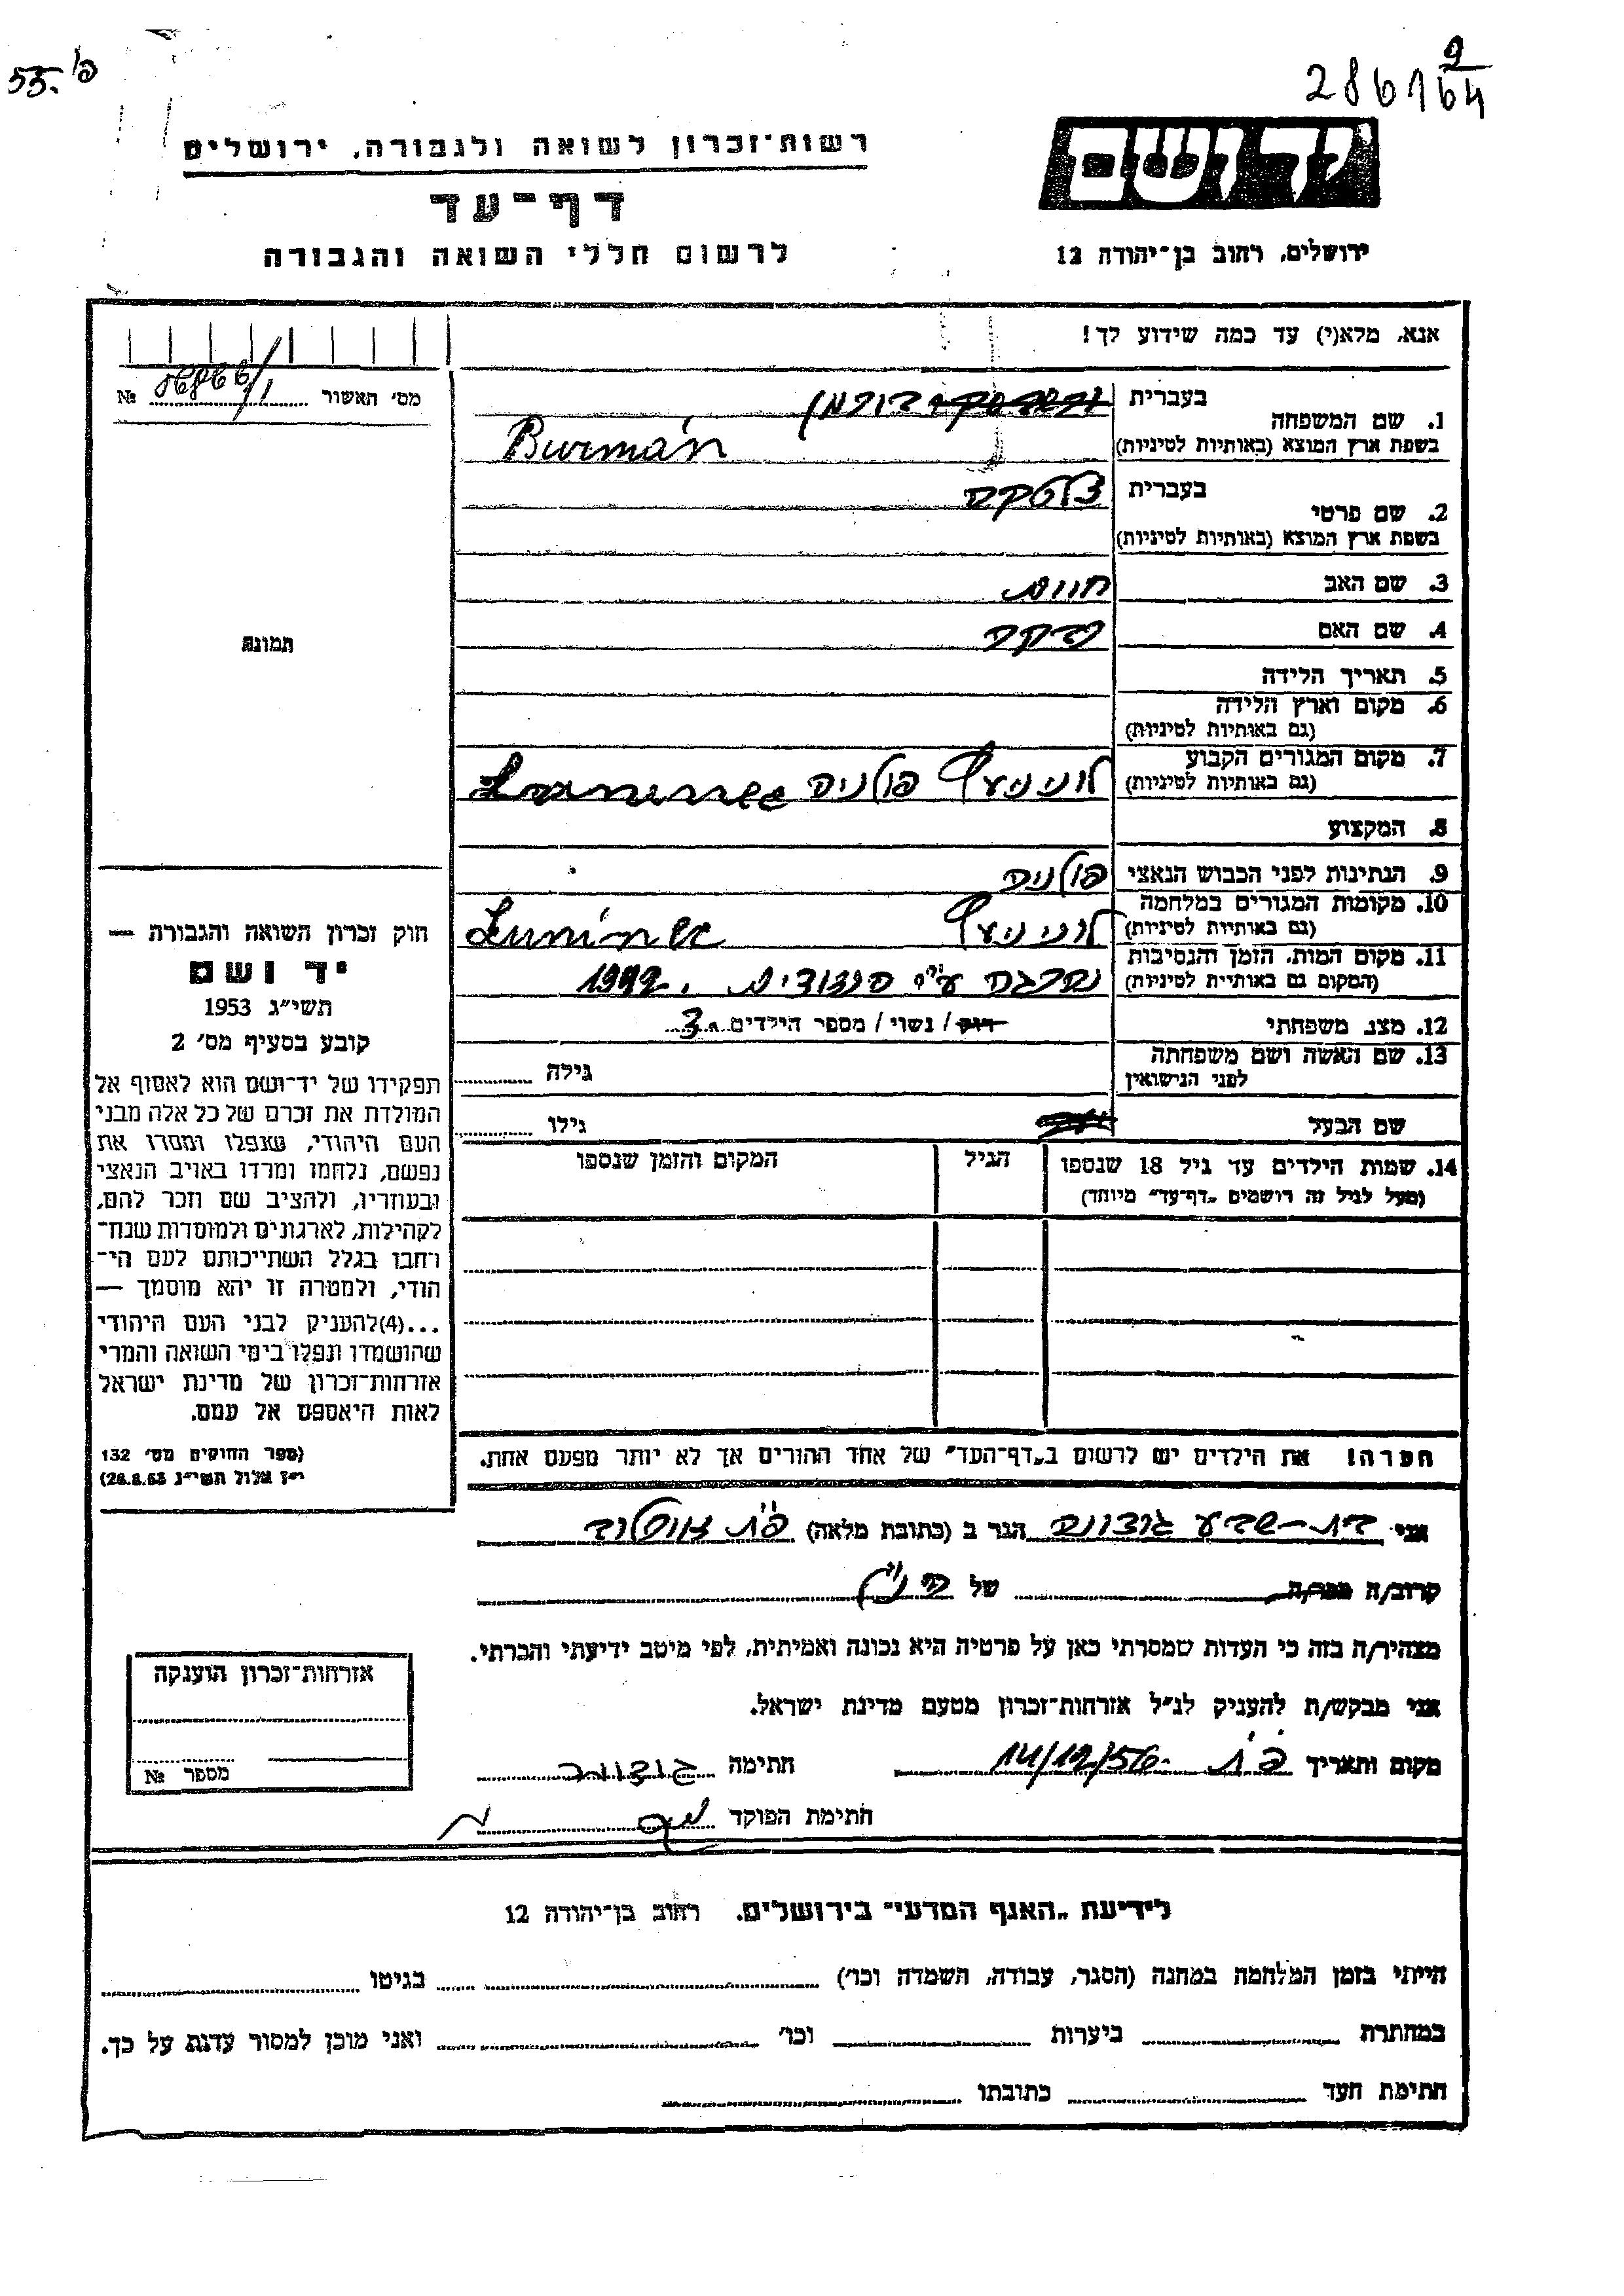 55. פ'
286164
9
רשות־זכרון לשואה ולגבורה, ירושלים
יד ושם
דף־עד
לרשום חללי השואה והגבורה
ירושלים, רחוב בן־יהודה 12
אנא, מלא(י) עד כמה שידוע לך!
מס' תאשור №
1. שם המשפחה
בעברית בורמן
בשפת ארץ המוצא (באותיות לטיניות) Burmán
2. שם פרטי
בעברית
בשפת ארץ המוצא (באותיות לטיניות)
3. שם האב
4. שם האם
5. תאריך הלידה
6. מקום וארץ הלידה
(גם באותיות לטיניות)
7. מקום המגורים הקבוע
(גם באותיות לטיניות) לונינעץ פולניה
8. המקצוע
9. הנתינות לפני הכבוש הנאצי פולניה
10. מקומות המגורים במלחמה
(גם באותיות לטיניות) לונינעץ Luninec
11. מקום המות, הזמן והנסיבות
(המקום גם באותיית לטיניות) נהרגה ע"י 1942.
12. מצב משפחתי רוק / נשוי / מספר הילדים 3
13. שם האשה ושם משפחתה
לפני הנישואין
גילה
שם הבעל
גילו
14. שמות הילדים עד גיל 18 שנספו
(מעל לגיל זה רושמים „דף־עד” מיוחד)
הגיל
המקום והזמן שנספו
תמונה
חוק זכרון השואה והגבורה —
יד ושם
תשי״ג 1953
קובע בסעיף מס' 2
תפקידו של יד־ושם הוא לאסוף אל
המולדת את זכרם של כל אלה מבני
העם היהודי, שנפלו ומסרו את
נפשם, נלחמו ומרדו באויב הנאצי
ובעוזריו, ולהציב שם וזכר להם,
לקהילות, לארגונים ולמוסדות שנח־
רחבו בגלל השתייכותם לעם הי־
הודי, ולמטרה זו יהא מוסמך —
...(4)להעניק לבני העם היהודי
שהושמדו ונפלו בימי השואה והמרי
אזרחות־זכרון של מדינת ישראל
לאות היאספם אל עמם.
(ספר החוקים מס' 132
י״ז אלול תשי״ג 28.8.53)
הערה! את הילדים יש לרשום ב„דף־העד” של אחד ההורים אך לא יותר מפעם אחת.
אני בת-שבע הגר ב (כתובת מלאה) פ"ת
קרוב/ה מכר/ה של הנ"ל
מצהיר/ה בזה כי העדות שמסרתי כאן על פרטיה היא נכונה ואמיתית, לפי מיטב ידיעתי והכרתי.
אני מבקש/ת להעניק לנ״ל אזרחות־זכרון מטעם מדינת ישראל.
מקום ותאריך פ"ת 14/12/56
חתימה
חתימת הפוקד
אזרחות־זכרון הוענקה
מספר №
לידיעת „האגף המדעי” בירושלים, רחוב בן־יהודה 12
הייתי בזמן המלחמה במחנה (הסגר, עבודה, השמדה וכו') בגיטו
במחתרת ביערות וכו' ואני מוכן למסור עדות על כך.
חתימת העד כתובתו